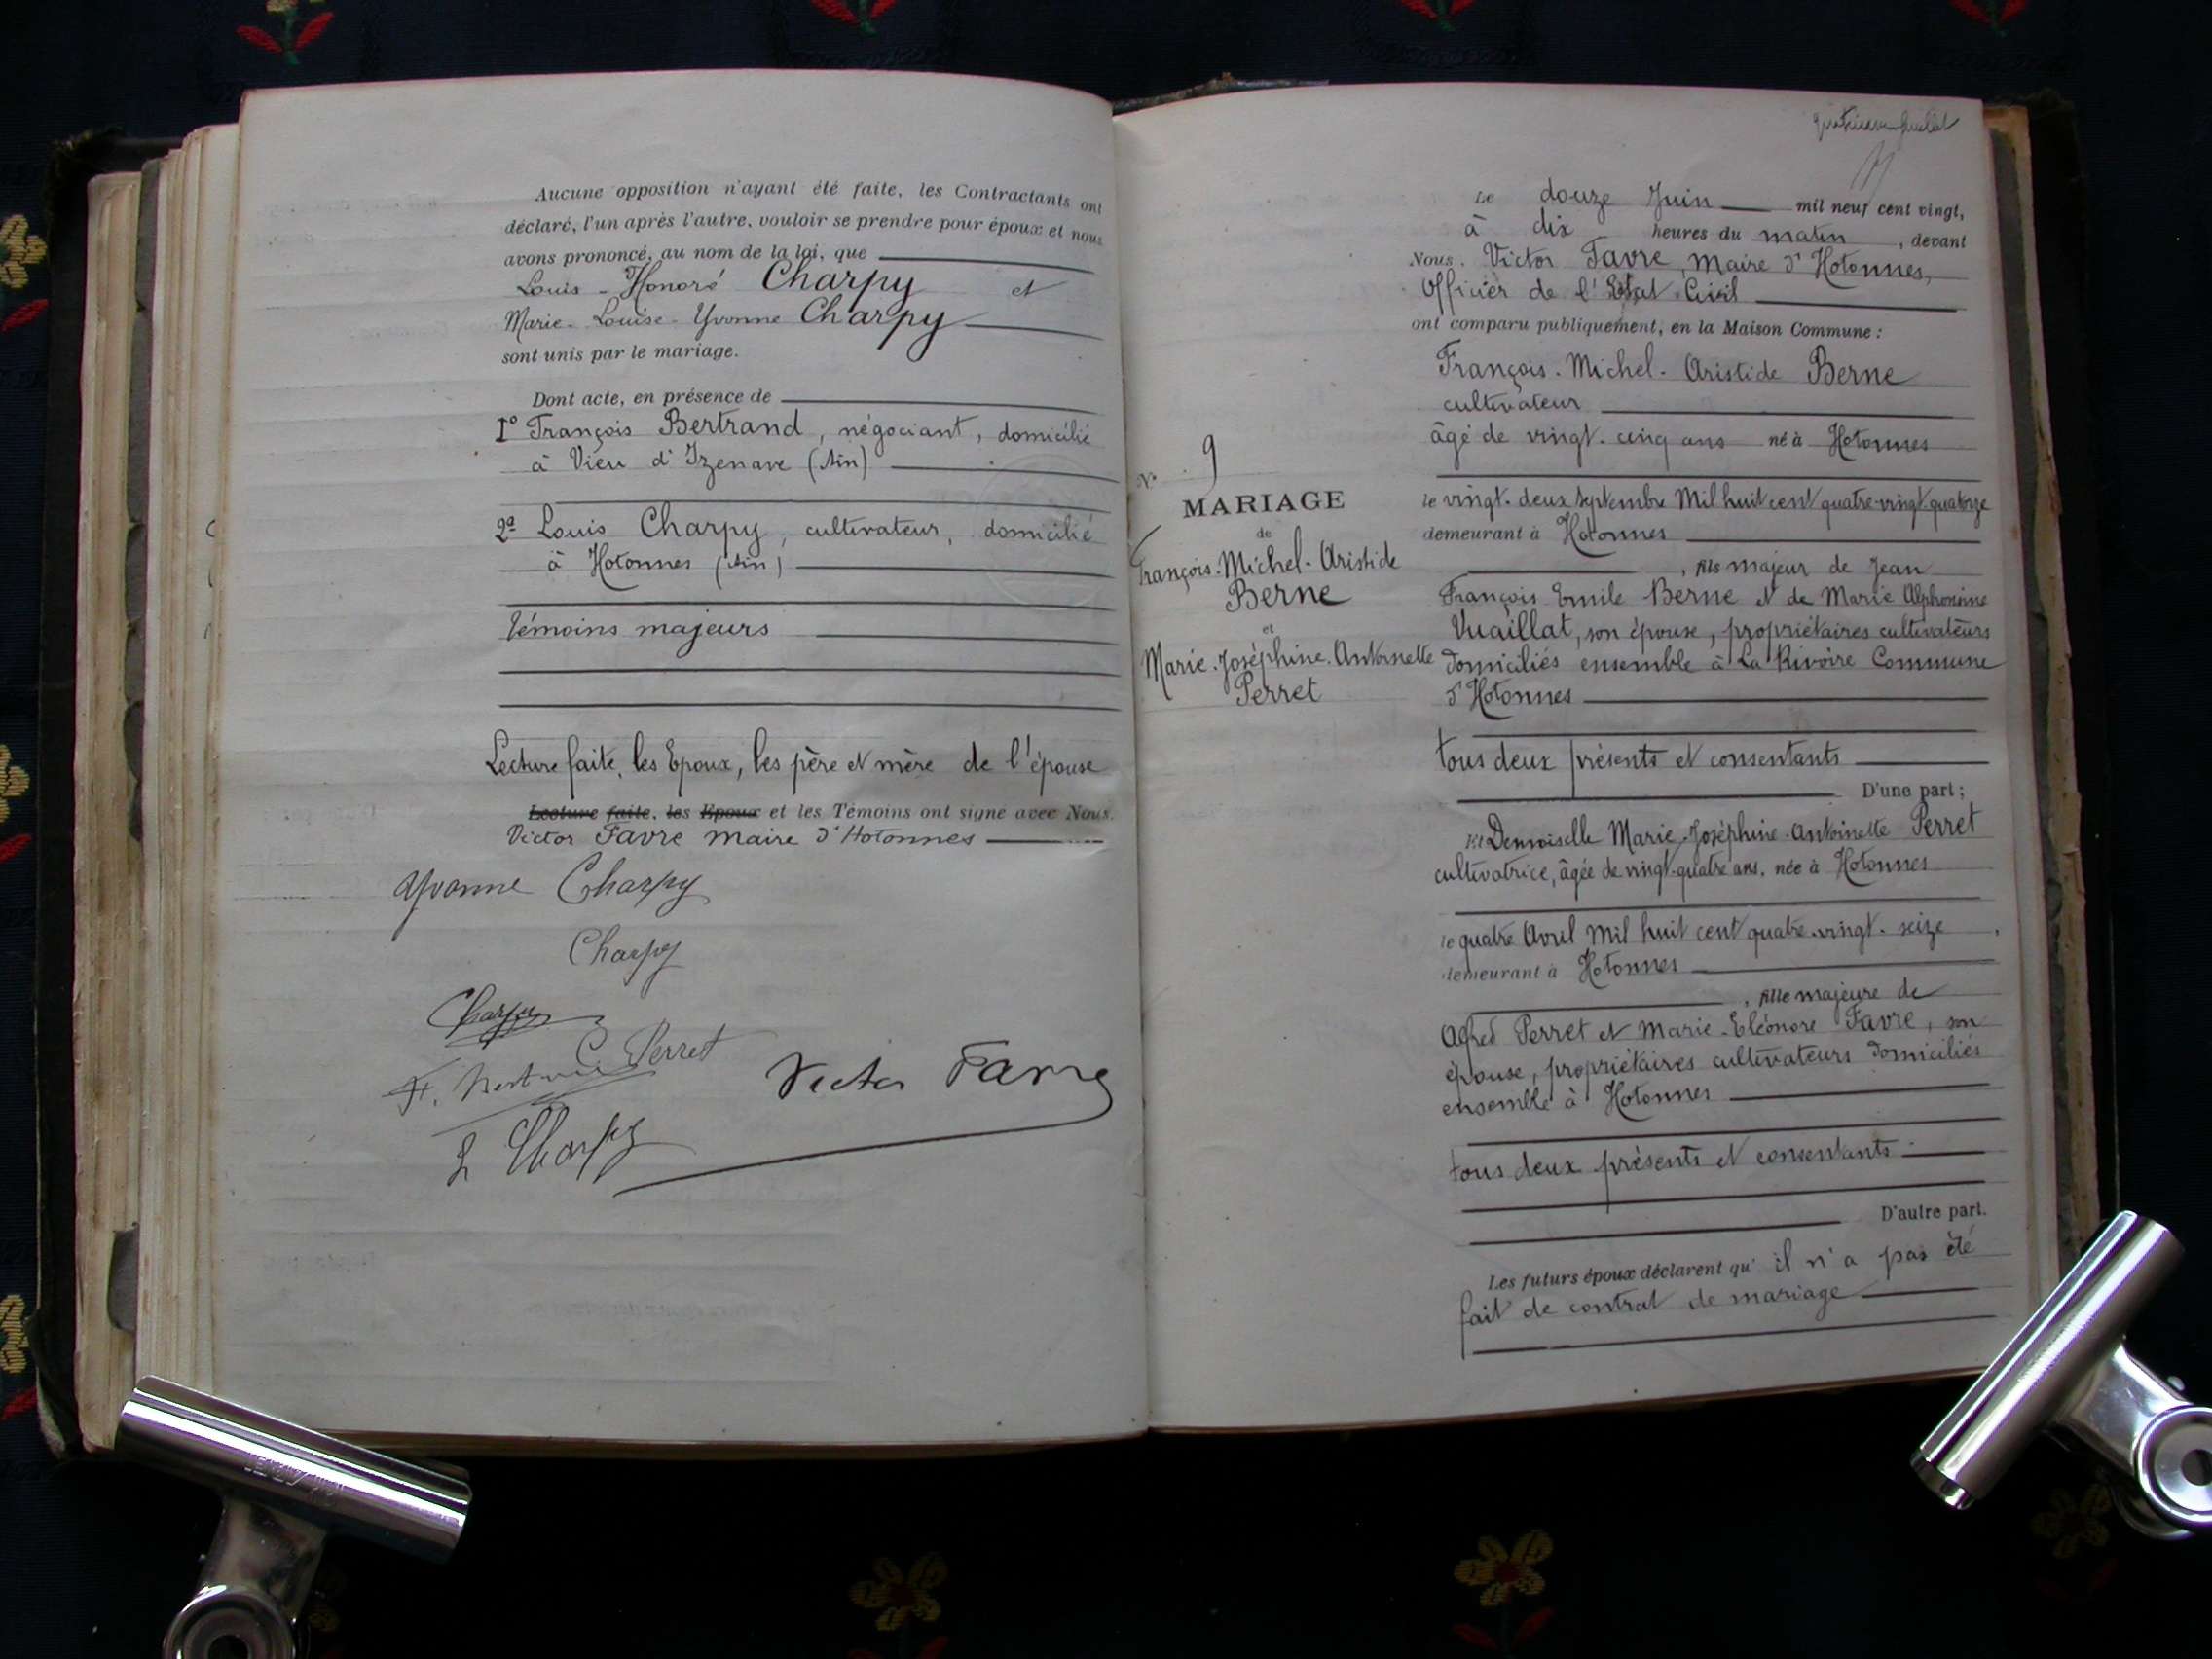 Aucune opposition n'ayant été faite, les Contractants ont
déclaré, l'un après l'autre, vouloir se prendre pour époux et nous
avons prononcé, au nom de la loi, que
Louis - Honoré Charpy et
Marie - Louise - Yvonne Charpy
sont unis par le mariage.
Dont acte, en présence de
1° François Bertrand, négociant, domicilié
à Vieu d'Izenave (Ain)
2° Louis Charpy, cultivateur, domicilié
à Hotonnes (Ain)
témoins majeurs
Lecture faite, les Epoux, les père et mère de l'épouse
Lecture faite, les Epoux et les Témoins ont signé avec Nous.
Victor Favre Maire d'Hotonnes
Yvonne Charpy
Charpy
Charpy
C. Perret
F. Bertrand
Victor Favre
L Charpy
Le douze Juin mil neuf cent vingt,
à dix heures du matin, devant
Nous. Victor Favre, Maire d'Hotonnes,
Officier de l'Etat Civil
ont comparu publiquement, en la Maison Commune :
François - Michel - Aristide Berne
cultivateur
âgé de vingt-cinq ans né à Hotonnes
le vingt-deux septembre Mil huit cent quatre-vingt quatorze
demeurant à Hotonnes
, fils majeur de Jean
François Emile Berne et de Marie Alphonsine
Vuaillat, son épouse, propriétaires cultivateurs
domiciliés ensemble à La Rivoire Commune
d'Hotonnes
tous deux présents et consentants
D'une part ;
Et Demoiselle Marie-Joséphine-Antoinette Perret
cultivatrice, âgée de vingt-quatre ans, née à Hotonnes
le quatre Avril Mil huit cent quatre-vingt-seize,
demeurant à Hotonnes
, fille majeure de
Alfred Perret et Marie-Eléonore Favre, son
épouse, propriétaires cultivateurs domiciliés
ensemble à Hotonnes
tous deux présents et consentants
D'autre part.
Les futurs époux déclarent qu'il n'a pas été
fait de contrat de mariage
N° 9
MARIAGE
de
François-Michel-Aristide
Berne
et
Marie-Joséphine-Antoinette
Perret